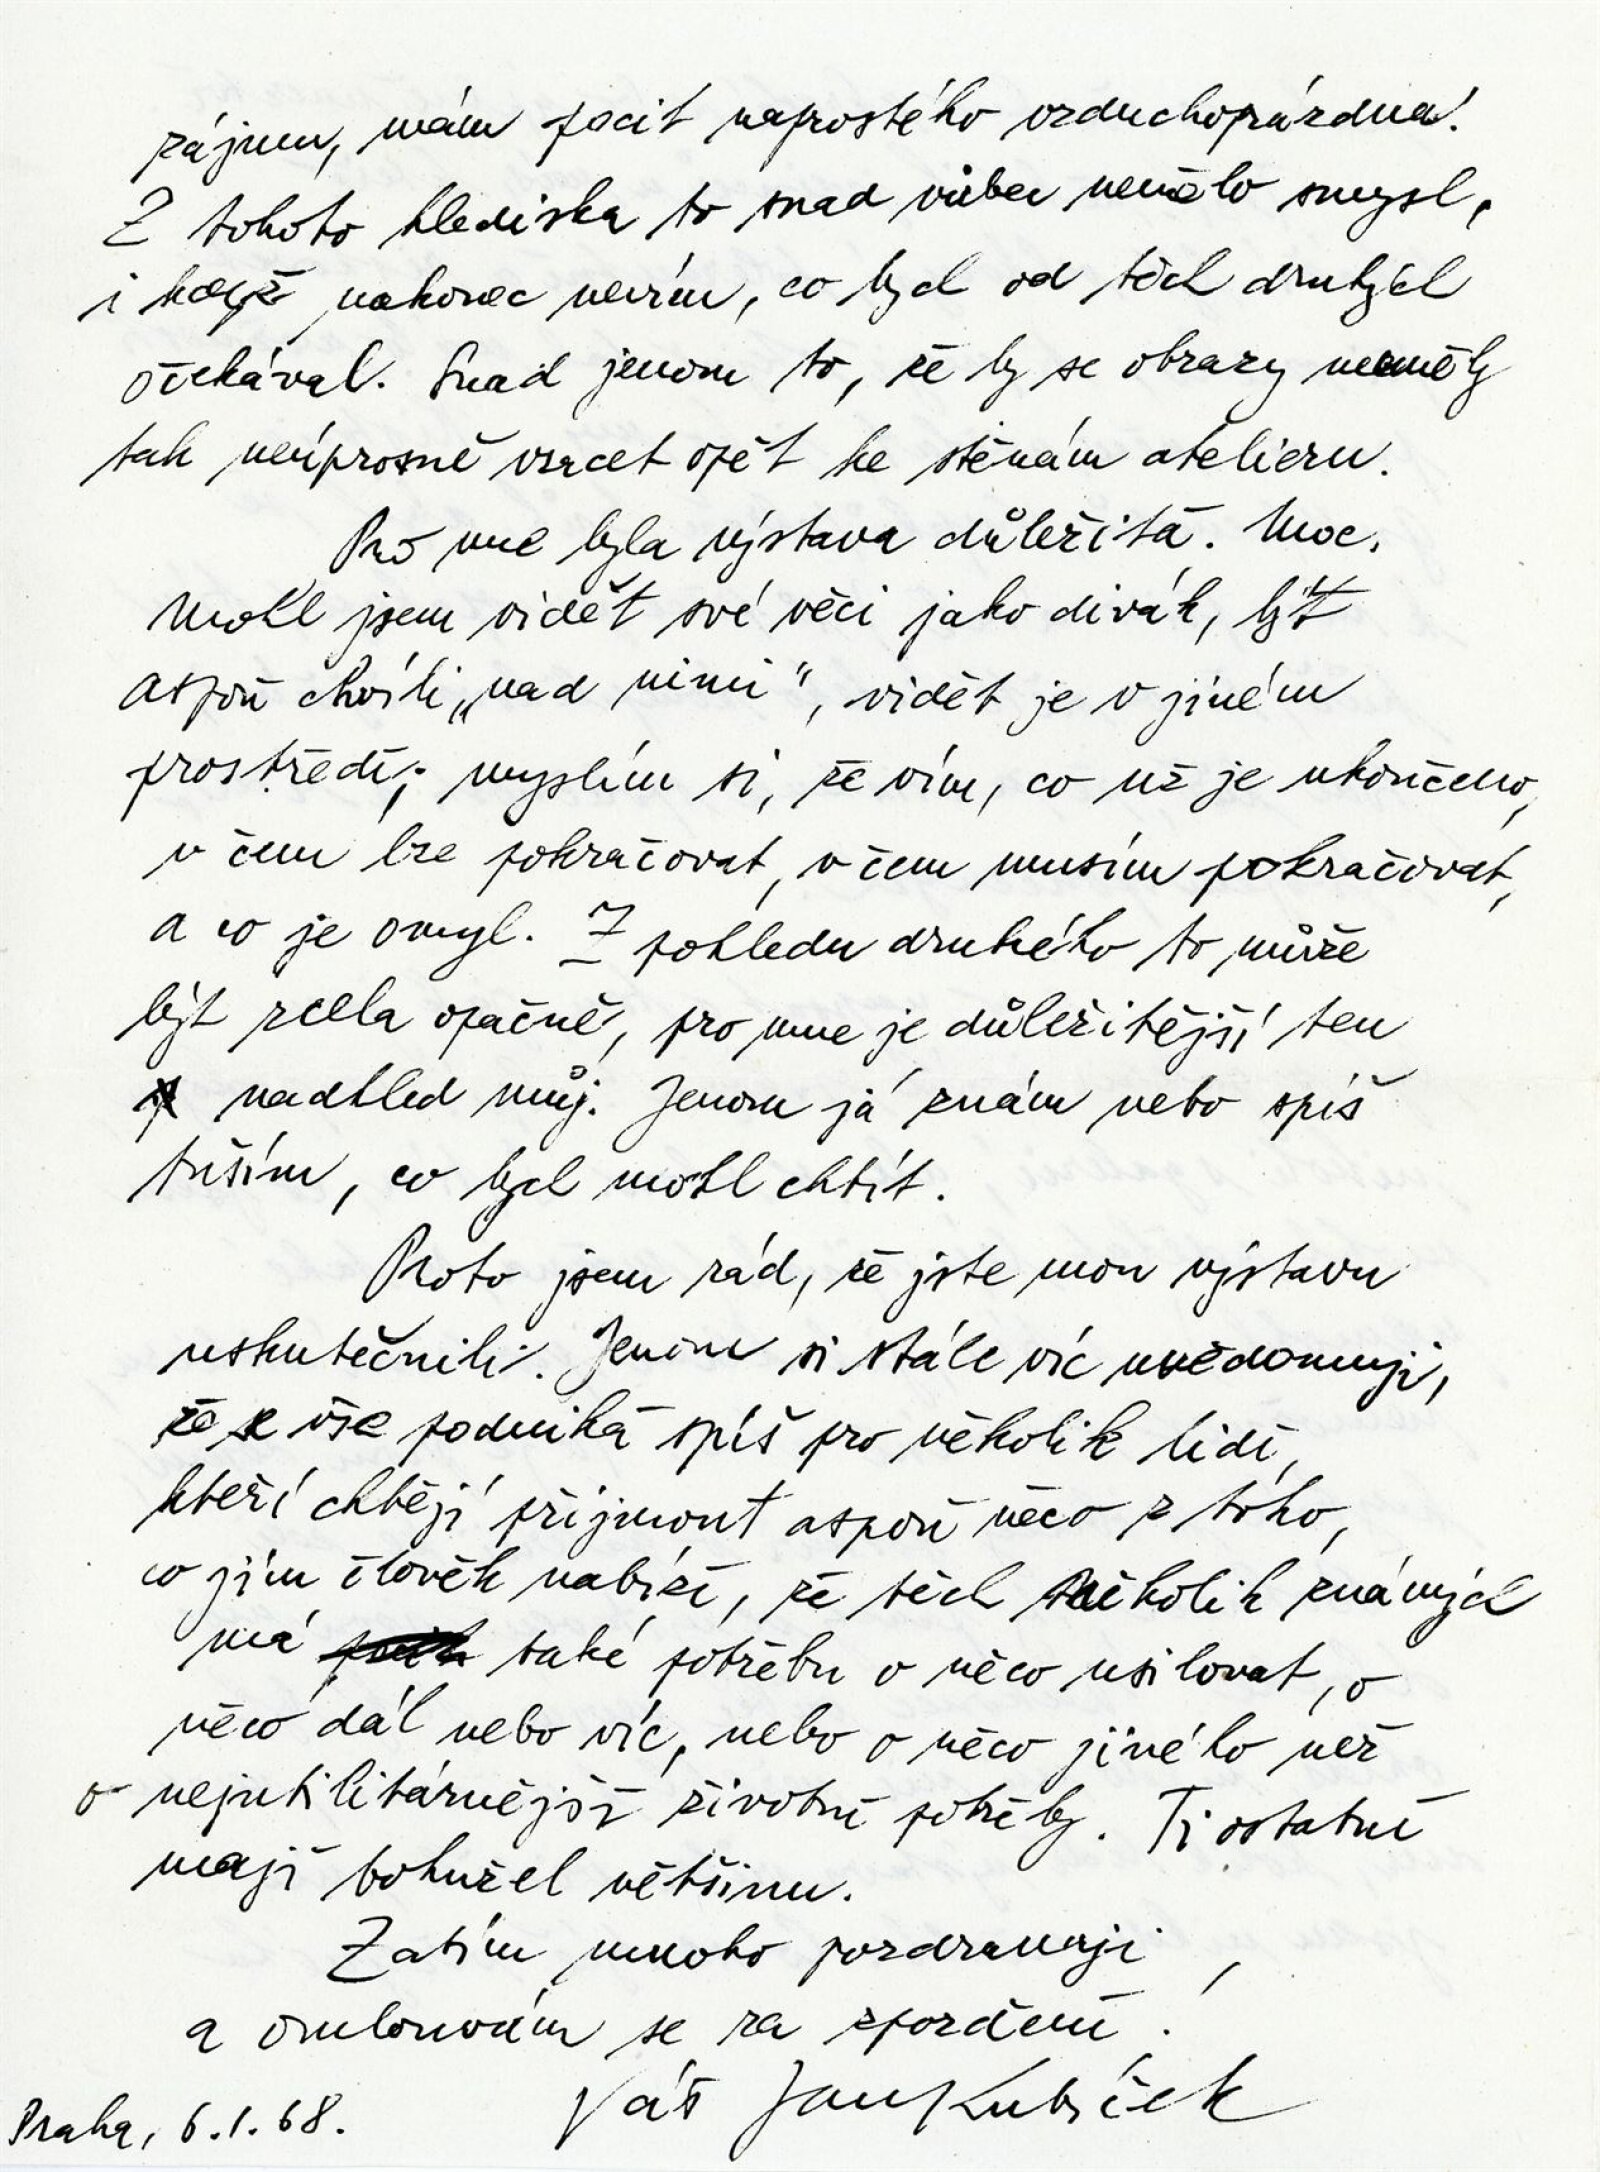 zájmu, mám pocit naprostého vzduchoprázdna.
Z tohoto hlediska to snad vůbec nemělo smysl,
i když nakonec nevím, co bych od těch druhých
očekával. Snad jenom to, že by se obrazy neměly
tak neúprosně vracet opět ke stěnám atelieru.
Pro mne byla výstava důležitá. Moc.
Mohl jsem vidět své věci jako divák, být
aspoň chvíli „nad nimi“, vidět je v jiném
prostředí; myslím si, že vím, co už je ukončeno,
v čem lze pokračovat, v čem musím pokračovat,
a co je omyl. Z pohledu druhého to může
být zcela opačné, pro mne je důležitější ten
nadhled můj. Jenom já znám nebo spíš
tuším, co bych mohl chtít.
Proto jsem rád, že jste mou výstavu
uskutečnili. Jenom si stále víc uvědomuji,
že se vše podniká spíš pro několik lidí,
kteří chtějí přijmout aspoň něco z toho,
co jim člověk nabízí, že těch několik známých
má také potřebu o něco usilovat, o
něco dál nebo víc, nebo o něco jiného než
o nejutilitárnější životní potřeby. Ti ostatní
mají bohužel většinu.
Zatím mnoho pozdravuji,
a omlouvám se za zpoždění.
Váš Jan Kubíček
Praha, 6.1.68.